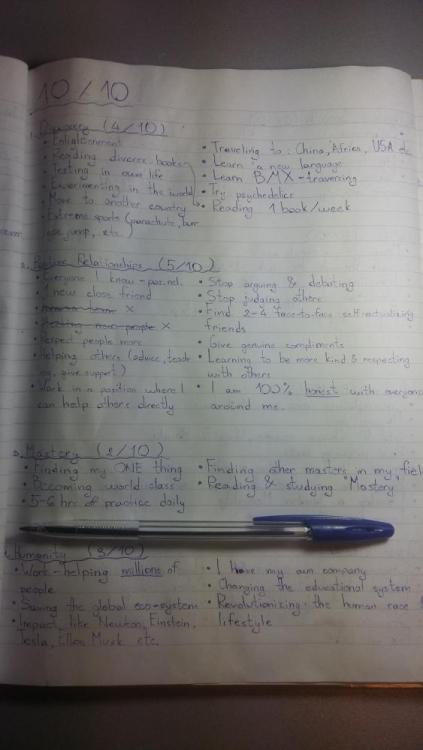 10/10
1. Discovery (4/10)
• Enlightenment
• Reading diverse books
• Testing in own life
• Experimenting in the world
• Move to another country
• Extreme sports (parachute, bun
gee jump, etc.)
• Traveling to: China, Africa, USA etc
• Learn a new language
• Learn BMX - traverring
• Try psychedelics
• Reading 1 book/week
2. Positive Relationships (5/10)
• Everyone I know - pos. rel.
• 1 new close friend
• Meeting new people x
• Respect people more
• Helping others (advice, teach
ing, give support)
• Work in a position where I
can help others directly
• Stop arguing & debating
• Stop judging others
• Find 2-4 face-to-face self-actualizing
friends
• Give genuine compliments
• Learning to be more kind & respecting
with others
• I am 100% honest with everyone
around me.
3. Mastery (2/10)
• Finding my ONE thing
• Becoming world class
• 5-6 hrs of practice daily
• Finding other masters in my field
• Reading & studying "Mastery"
Humanity (3/10)
• Work - helping millions of
people
• Saving the global eco-system
• Impact, like Newton, Einstein,
Tesla, Ellon Musk etc.
• I have my own company
• Changing the educational system
• Revolutionizing the human race
lifestyle